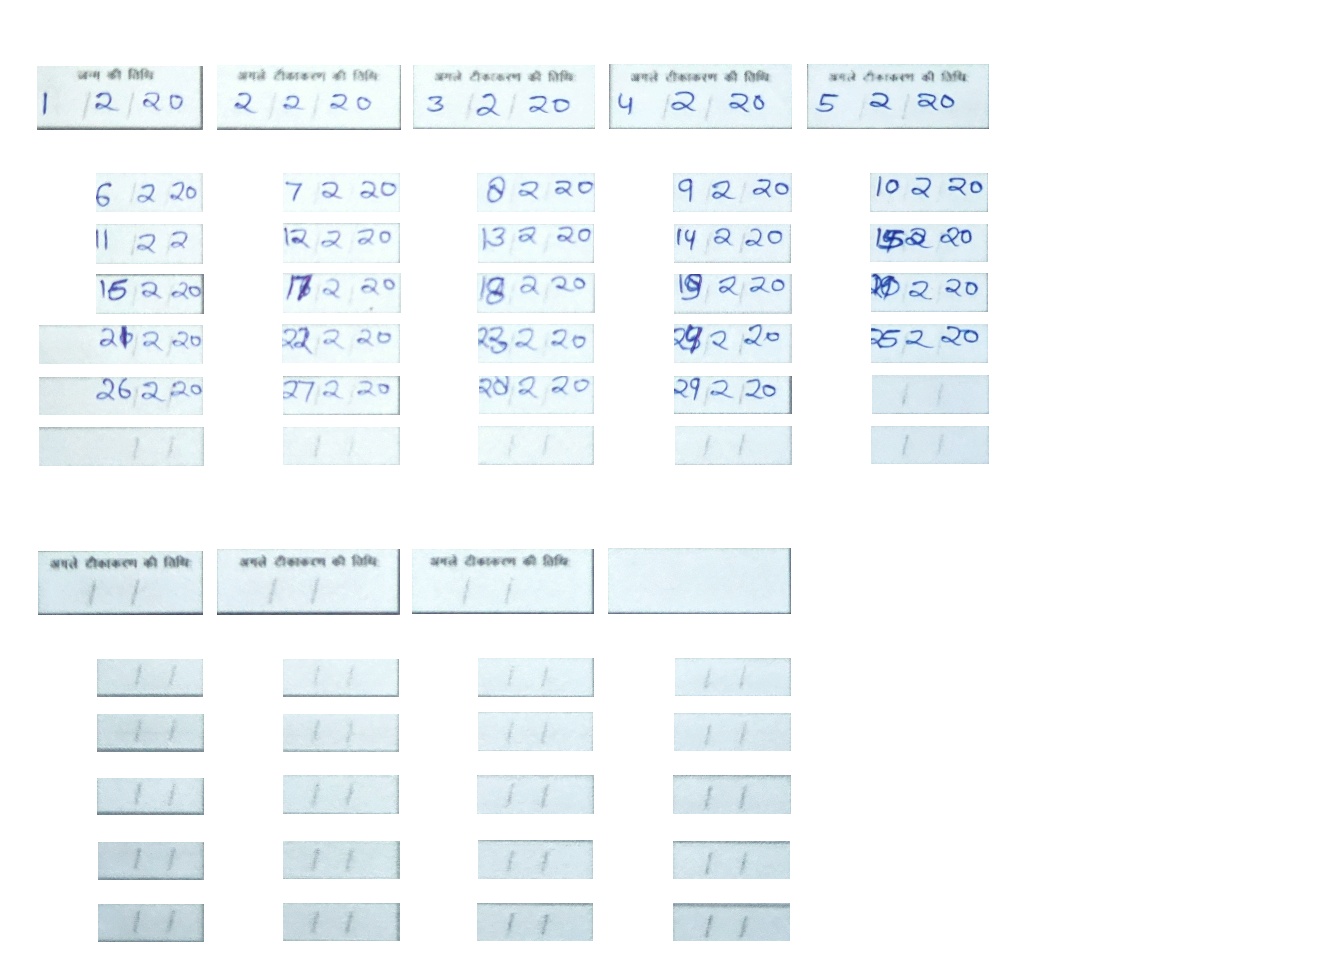 जन्म की तिथि अगले टीकाकरण की तिथि: अगले टीकाकरण की तिथि: अगले टीकाकरण की तिथि: अगले टीकाकरण की तिथि:
1 / 2 / 20 2 / 2 / 20 3 / 2 / 20 4 / 2 / 20 5 / 2 / 20
6 / 2 / 20 7 / 2 / 20 8 / 2 / 20 9 / 2 / 20 10 / 2 / 20
11 / 2 / 2 12 / 2 / 20 13 / 2 / 20 14 / 2 / 20 2 / 20
15 / 2 / 20 17 / 2 / 20 18 / 2 / 20 19 / 2 / 20 2 / 20
21 / 2 / 20 22 / 2 / 20 23 / 2 / 20 2 / 20 25 / 2 / 20
26 / 2 / 20 27 / 2 / 20 28 / 2 / 20 29 / 2 / 20 / /
/ / / / / / / / / /
अगले टीकाकरण की तिथि: अगले टीकाकरण की तिथि: अगले टीकाकरण की तिथि:
/ / / / / /
/ / / / / / / /
/ / / / / / / /
/ / / / / / / /
/ / / / / / / /
/ / / / / / / /